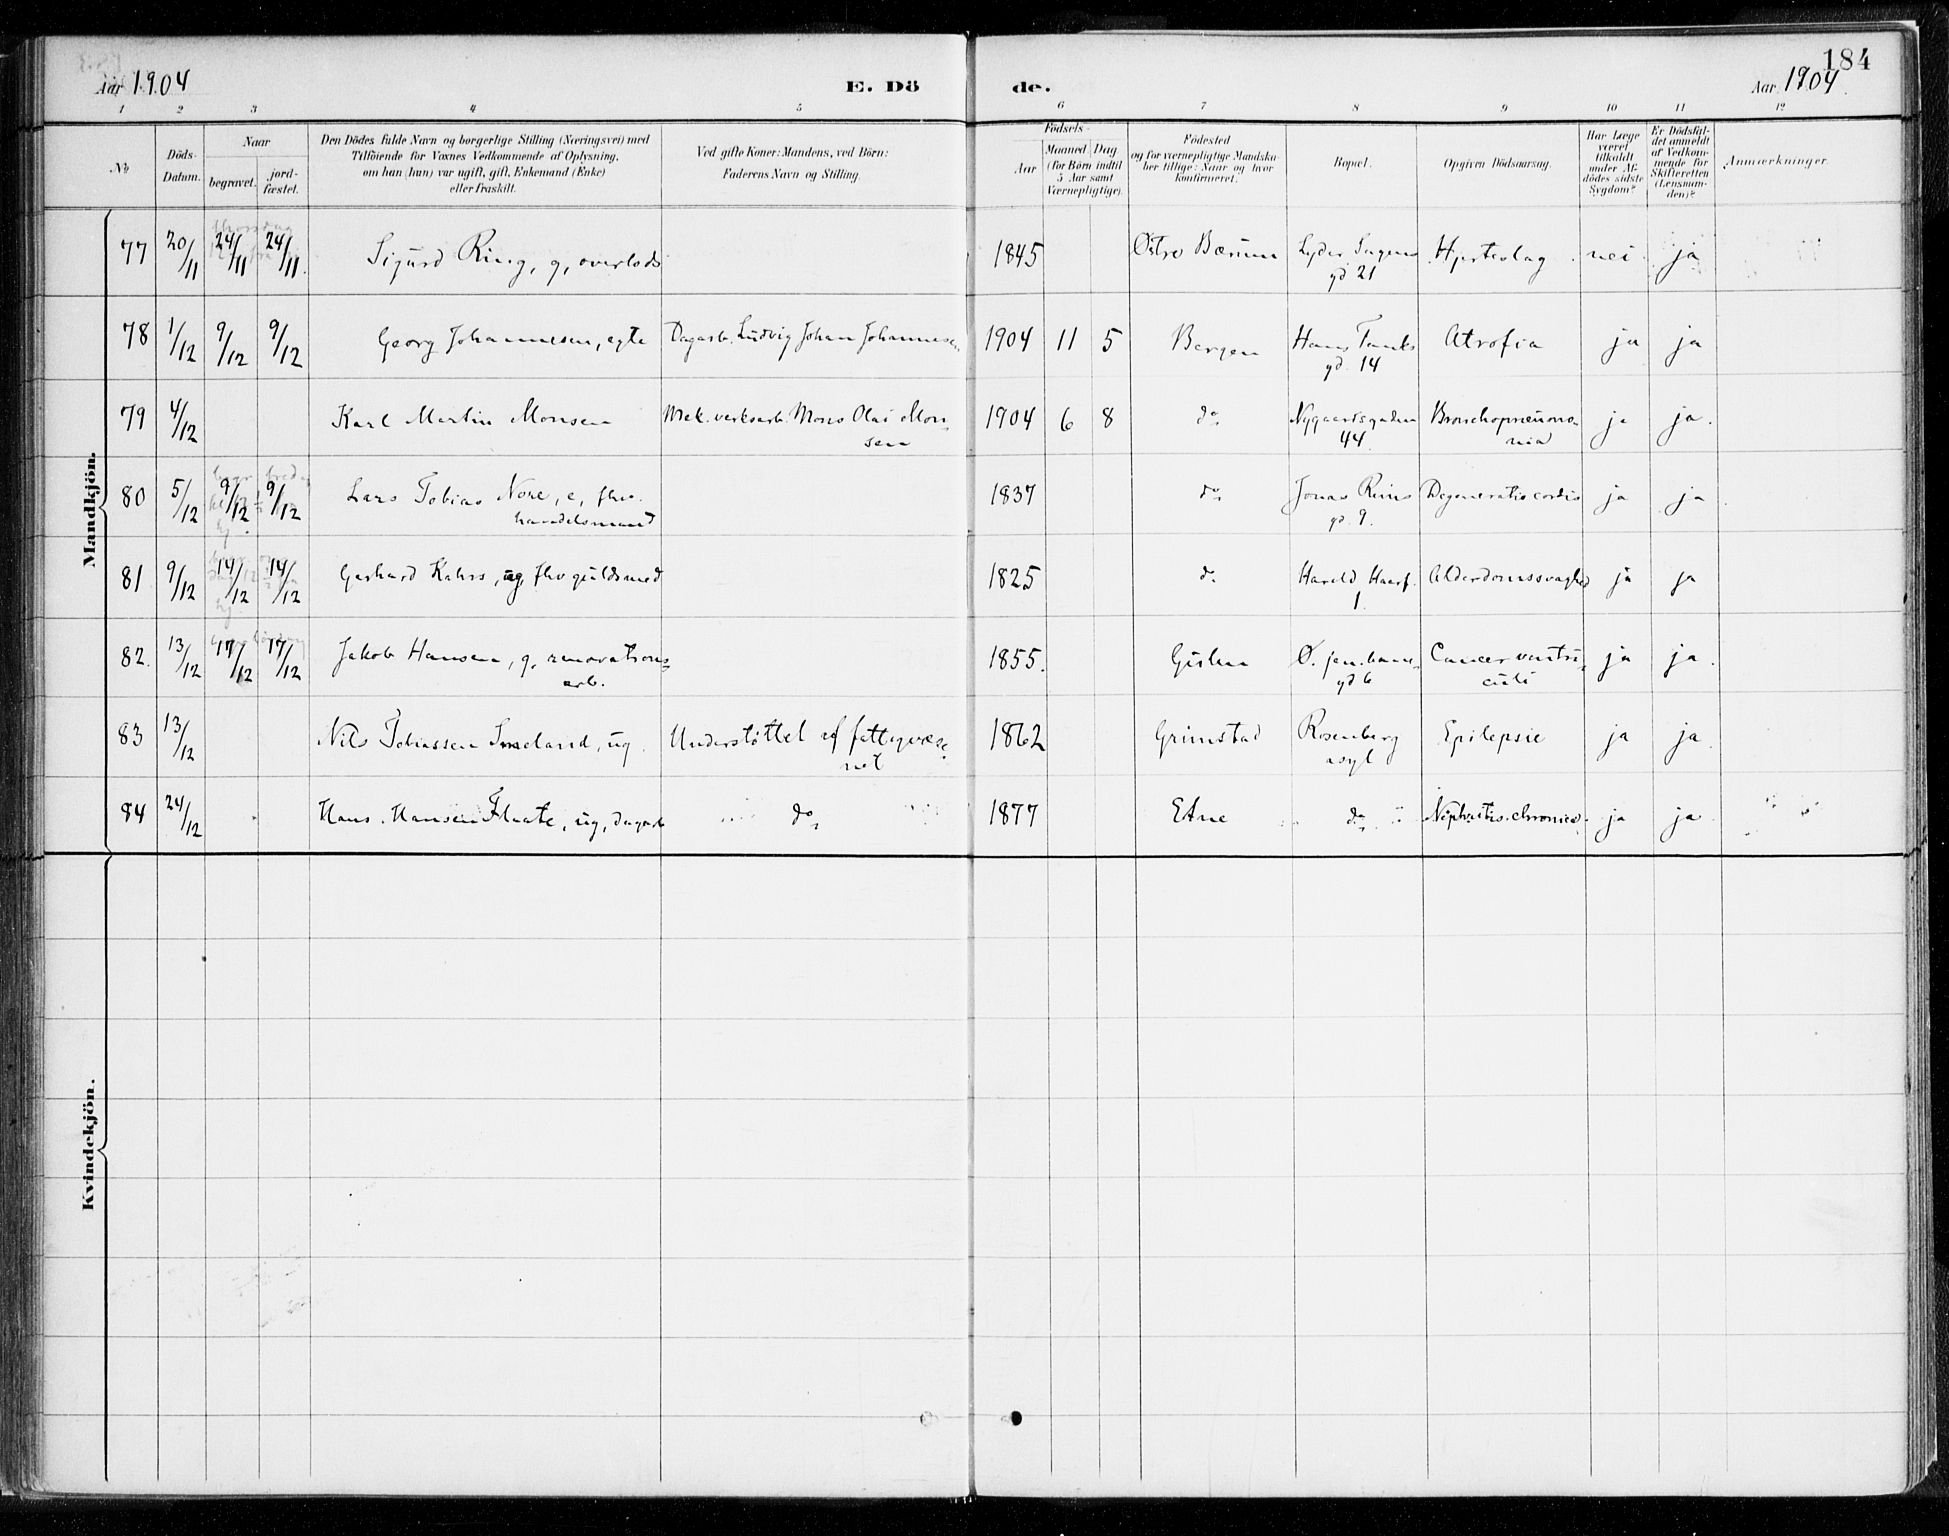 184
Aar 1904 E. Dö
de. Aar 1904
1 2 3 4 5 6 7 8 9 10 11 12
№
Döds-Datum.
Naar
begravet.
jordfæstet.
Den Dödes fulde Navn og borgerlige Stilling (Næringsvei) med
Tilföiende for Voxnes Vedkommende af Oplysning,
om han (hun) var ugift, gift, Enkemand (Enke)
eller fraskilt.
Ved gifte Koner: Mandens, ved Börn:
Faderens Navn og Stilling.
Födsels-
Aar
Maaned Dag
(for Börn indtil
5 Aar samt
Værnepligtige).
Födested
og for værnepligtige Mandska-
ber tillige: Naar og hvor
konfirmeret.
Bopæl.
Opgiven Dödsaarsag.
Har Læge
været
tilkaldt
under Af-
dödes sidste
Sygdom?
Er Dödsfal-
det anmeldt
af Vedkom-
mende for
Skifteretten
(Lensman-
den)?
Anmærkninger.
Mandkjön.
77 20/11 24/11 24/11 Sigurd Ring, g, overlods 1845 Østre Bærum Lyder Sagens nei ja
gd 21
78 1/12 9/12 9/12 Georg Johannesen, egte Dagarb. Ludvig Johan Johannesen 1904 11 5 Bergen Hans Tanks Atrofia ja ja
gd. 14
79 4/12 Karl Martin Monsen Mek. verksarb. Mons Olai Mon- 1904 6 8 do Nygaardsgaden Bronchopneumo- ja ja.
sen 44 nia
80 5/12 9/12 9/12 Lars Tobias Nore, e, fhv. 1837 do Jonas Reins Degeneratio cordis ja ja
handelsmand gd. 9.
81 9/12 14/12 14/12 Gerhard Kahrs, ug, fhv guldsmed 1825 do Harald Haarf. Alderdomssvaghed ja ja
1.
82. 13/12 17/12 17/12 Jakob Hansen, g, renovations- 1855. Ø. jernbane- Cancer ventri- ja ja.
arb. gd 6 culi
83 13/12 Nils Tobiassen ug. Understöttet af fattigvæse- 1862 Grimstad Rosenberg Epilepsie ja ja
net asyl
84 24/12 Hans Hansen Flaate, ug, dagarb do 1877 Etne do Nephritis chronica ja ja
Kvindekjön.